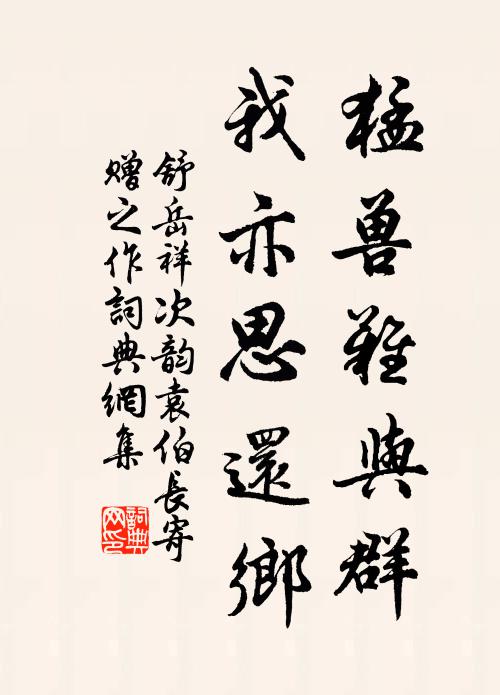 猛兽難與群
我亦思還鄉
舒岳祥次韵袁伯長寄
贈之作詞典網集
詞典网印